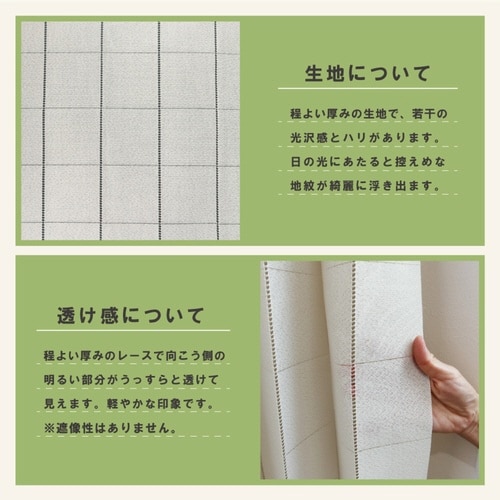 生地について
程よい厚みの生地で、若干の
光沢感とハリがあります。
日の光にあたると控えめな
地紋が綺麗に浮き出ます。
透け感について
程よい厚みのレースで向こう側の
明るい部分がうっすらと透けて
見えます。軽やかな印象です。
※遮像性はありません。